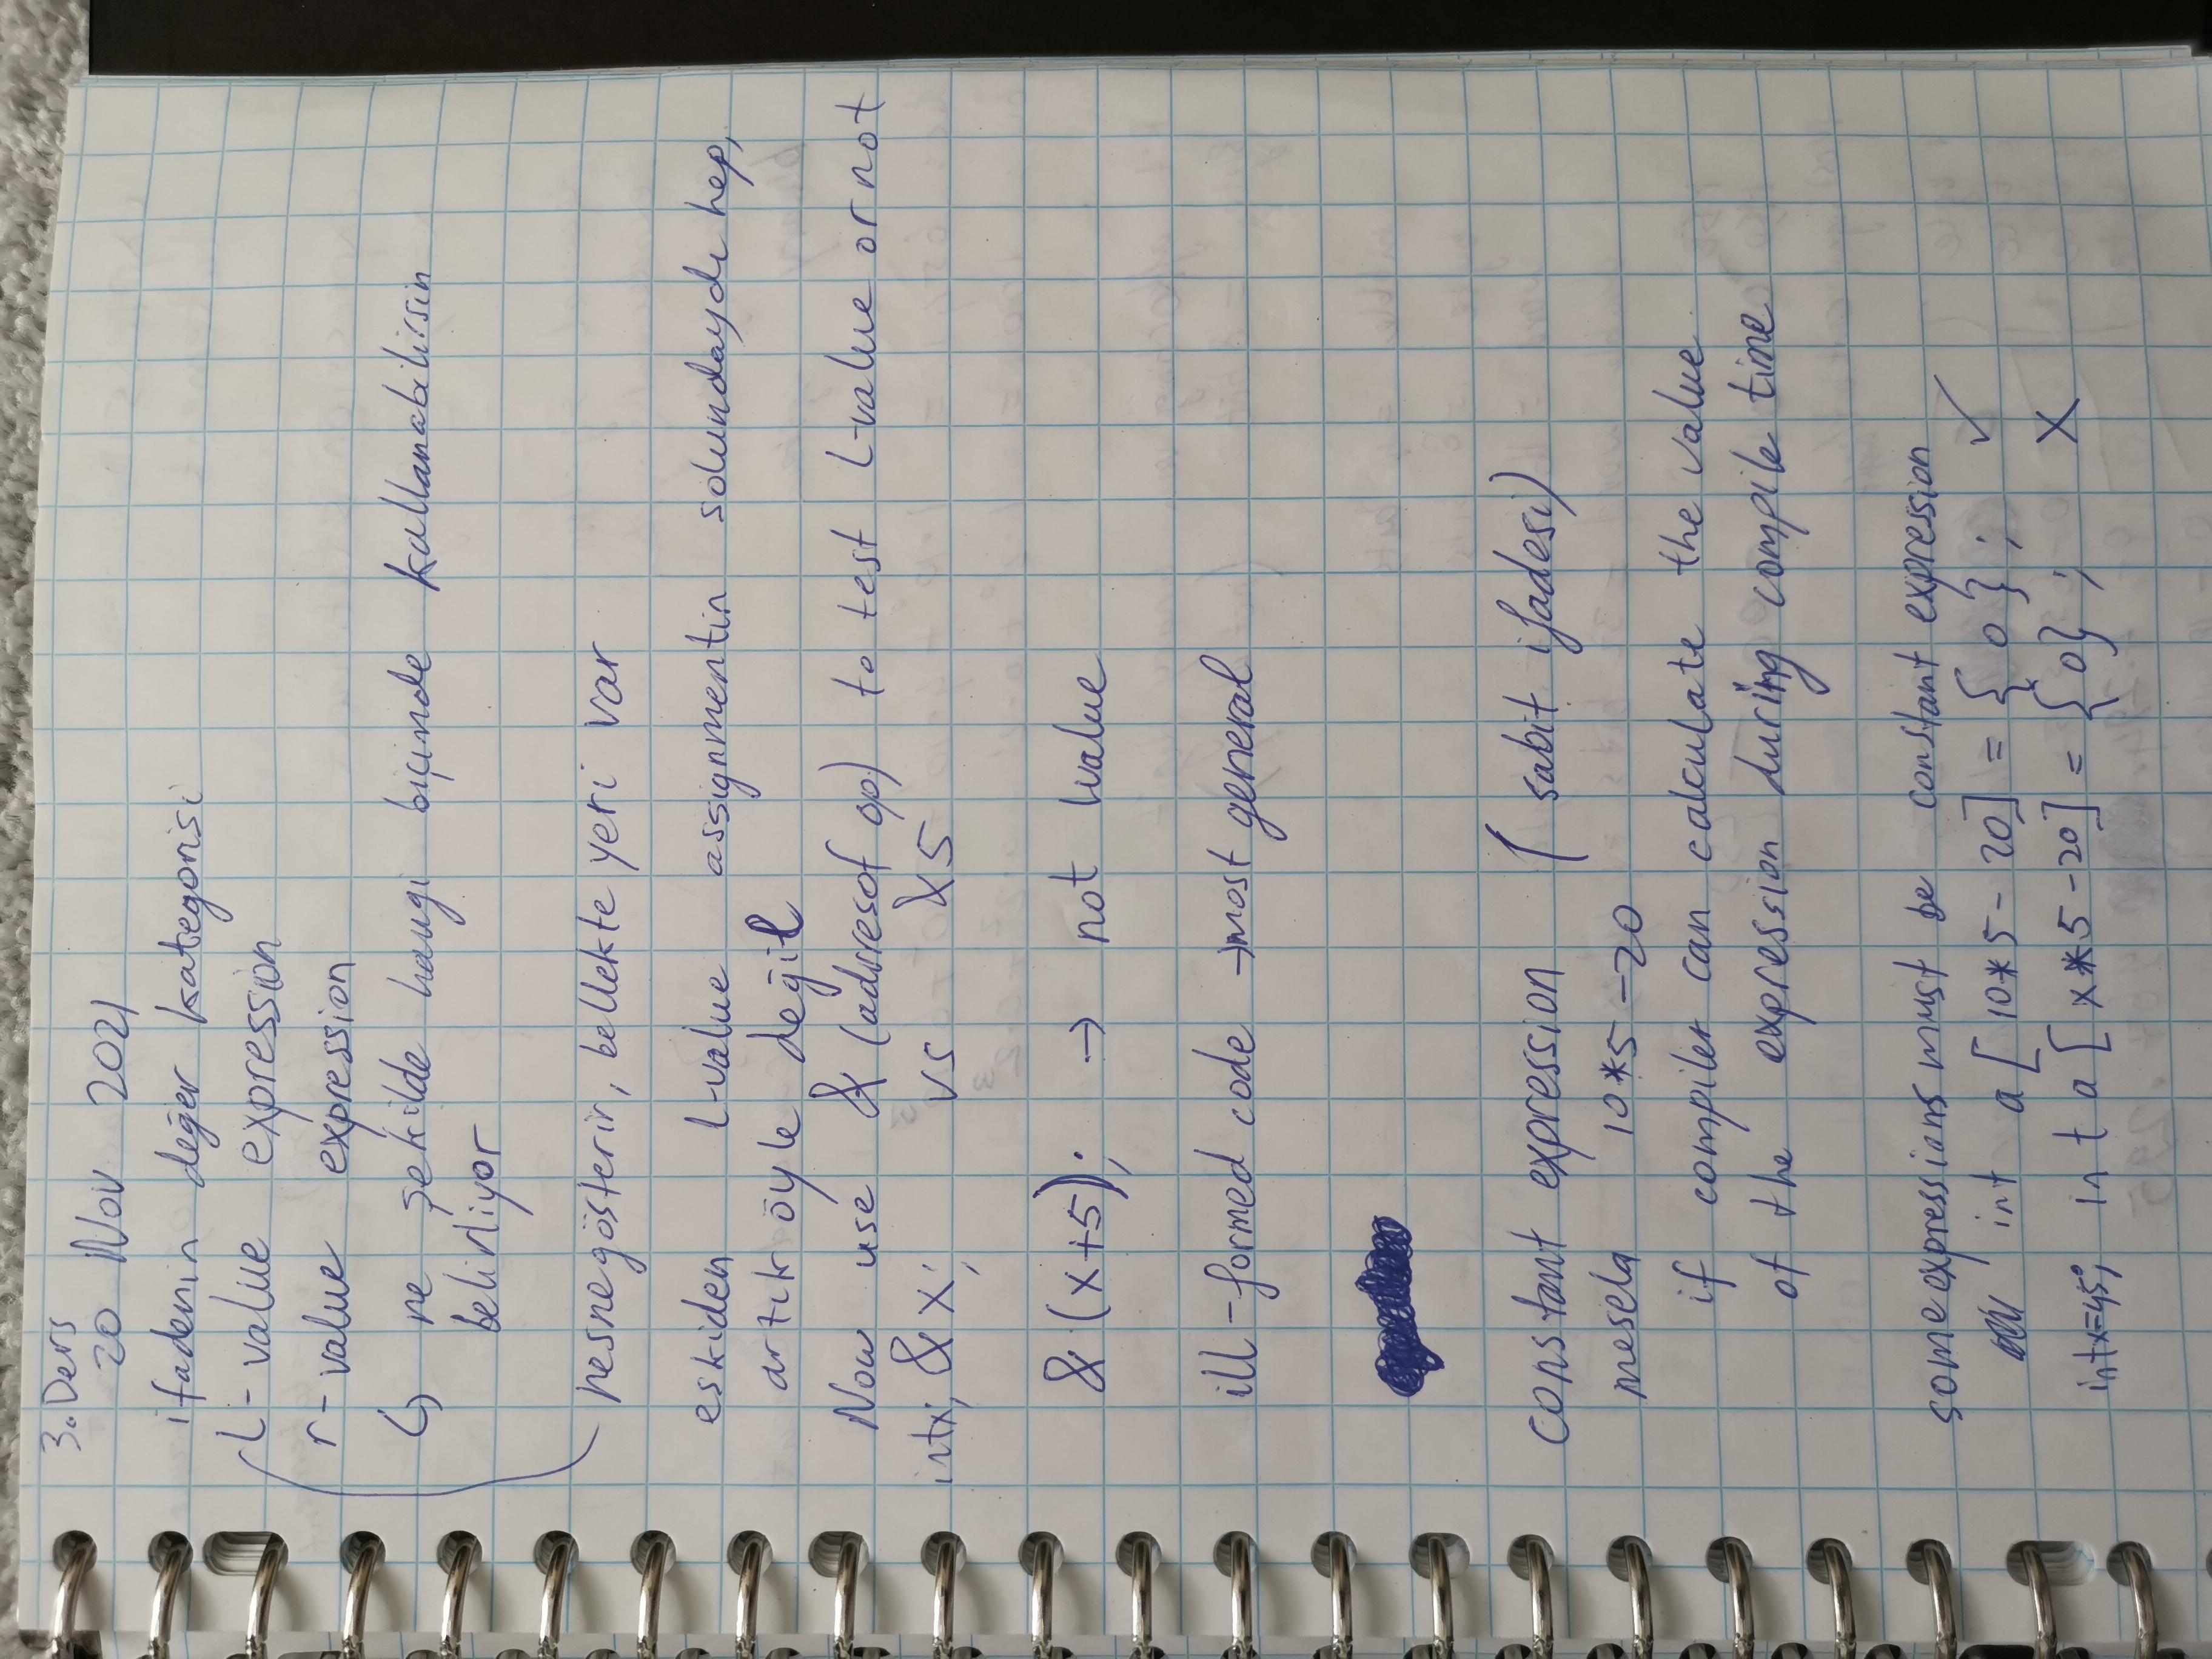 3. Ders
20 Nov 2021
ifadenin değer kategorisi
L-value expression
r-value expression
↳ ne şekilde hangi biçimde kullanabilirsin
belirliyor
nesne gösterir, bellekte yeri var
eskiden l-value assignmentin solundaydı hep,
artık öyle değil
Now use & (adresof op) to test L-value or not
int x; &x; vs &5
&(x+5); → not lvalue
ill-formed code → most general
constant expression (sabit ifadesi)
mesela 10*5-20
if compiler can calculate the value
of the expression during compile time
some expressions must be constant expression
int a[10*5-20] = {0}; ✓
int x=45; int a[x*5-20] = {0}; X